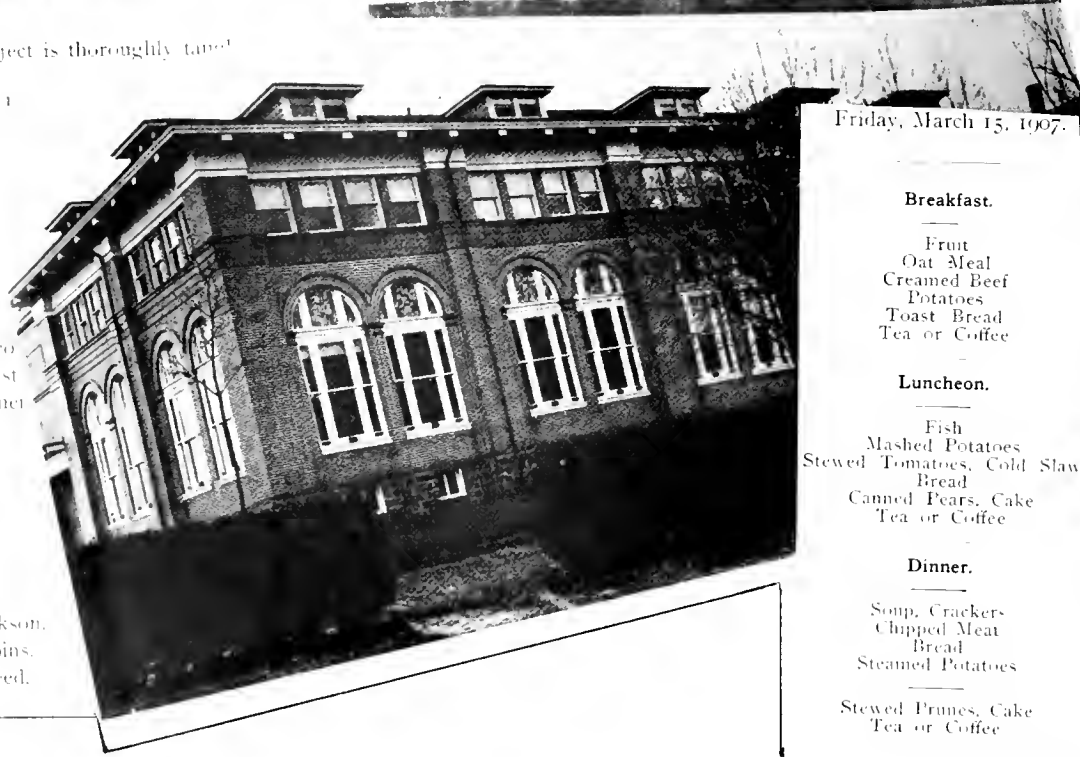 ject is thoroughly
Friday, March 15, 1907.
Breakfast.
Fruit
Oat Meal
Creamed Beef
Potatoes
Toast Bread
Tea or Coffee
Luncheon.
Fish
Mashed Potatoes
Stewed Tomatoes, Cold Slaw
Bread
Canned Pears, Cake
Tea or Coffee
Dinner.
Soup, Crackers
Chipped Meat
Bread
Steamed Potatoes
Stewed Prunes, Cake
Tea or Coffee
kson.